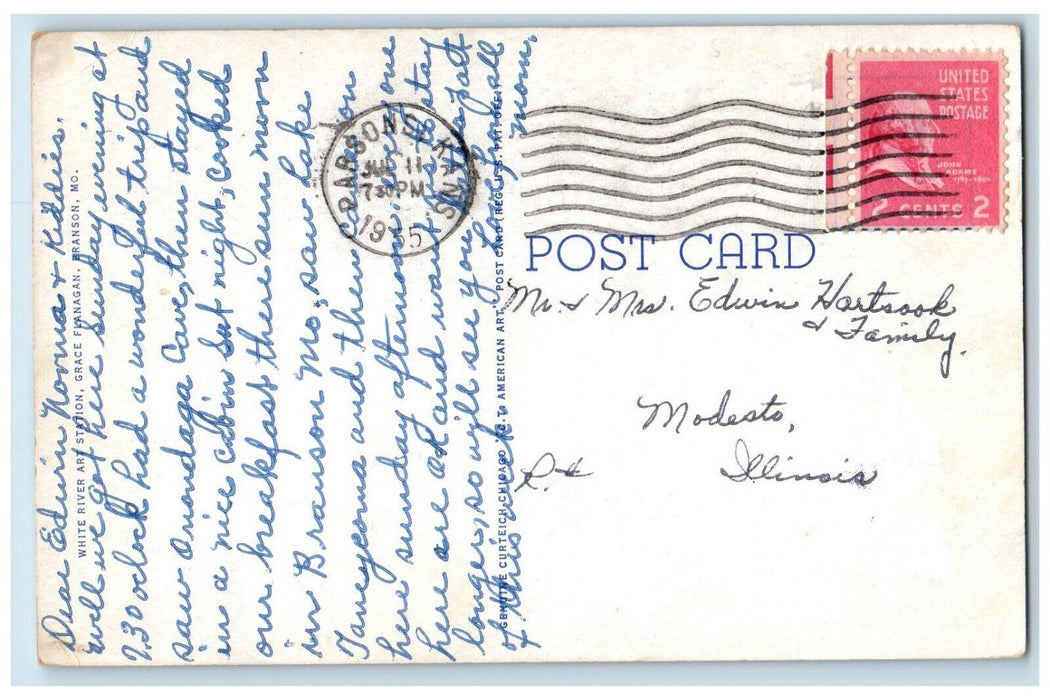 Dear Edwin Norma & Kiddies.
well we got here sunday evening at
7.30 oclock had a wonderful trip and
saw Onondaga Cave, then stayed
in a nice cabin sat night, cooked
our breakfast there sun morn
in Branson Mo, saw lake
Taneycomo and then on
here sunday afternoon.
here are ok and want us to stay
longer, so will see you
of this week Mom.
WHITE RIVER ART STATION, GRACE FLANAGAN, BRANSON, MO.
GENUINE CURTEICH-CHICAGO "C.T. AMERICAN ART" POST CARD (REG. U.S. PAT. OFF.)
PARSONS KANS.
11
730 PM
1955
UNITED
STATES
POSTAGE
JOHN
ADAMS
1797-1801
2 CENTS 2
POST CARD
Mr. & Mrs. Edwin Hartsook
& Family.
Modesto,
R.t Illinois